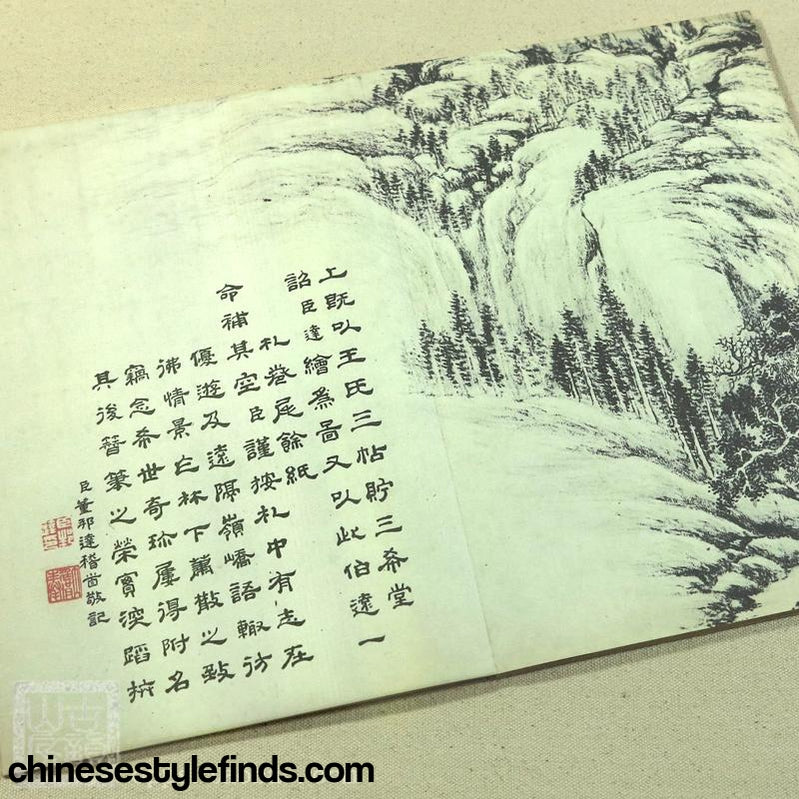 上既以王氏三帖貯三希堂
詔臣達繪為啚又以此伯遠一
札卷尾餘紙
命補其空臣謹按札中有志在
優遊及遠隔嶺嶠語輙彷
彿情景林下蕭散之致
竊念希世奇珍屢得附名
其後簪筆之榮實深蹈拚
臣董邦達稽首敬記
chinesestylefinds.com